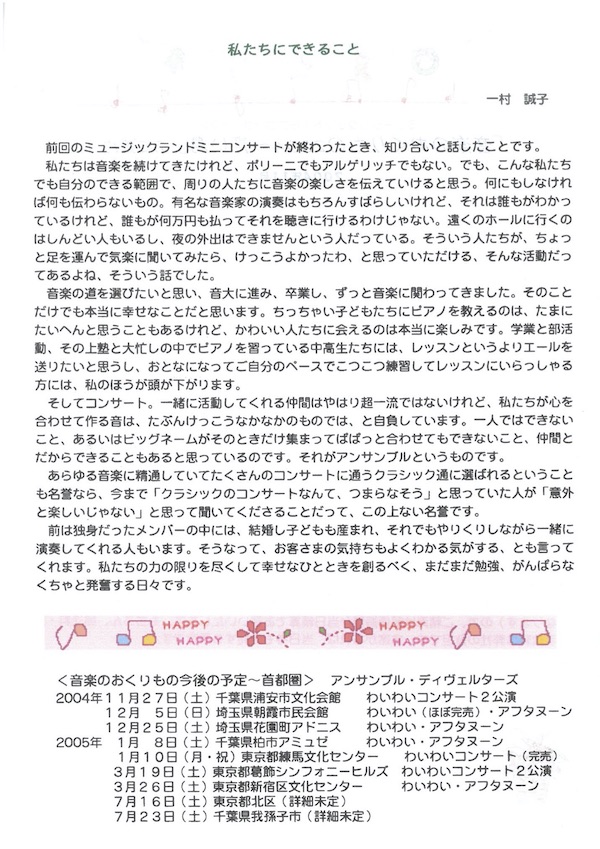 私たちにできること
一村　誠子
前回のミュージックランドミニコンサートが終わったとき、知り合いと話したことです。
私たちは音楽を続けてきたけれど、ポリーニでもアルゲリッチでもない。でも、こんな私たち
でも自分のできる範囲で、周りの人たちに音楽の楽しさを伝えていけると思う。何にもしなけれ
ば何も伝わらないもの。有名な音楽家の演奏はもちろんすばらしいけれど、それは誰もがわかっ
ているけれど、誰もが何万円も払ってそれを聴きに行けるわけじゃない。遠くのホールに行くの
はしんどい人もいるし、夜の外出はできませんという人だっている。そういう人たちが、ちょっ
と足を運んで気楽に聞いてみたら、けっこうよかったわ、と思っていただける、そんな活動だっ
てあるよね、そういう話でした。
音楽の道を選びたいと思い、音大に進み、卒業し、ずっと音楽に関わってきました。そのこと
だけでも本当に幸せなことだと思います。ちっちゃい子どもたちにピアノを教えるのは、たまに
たいへんと思うこともあるけれど、かわいい人たちに会えるのは本当に楽しみです。学業と部活
動、その上塾と大忙しの中でピアノを習っている中高生たちには、レッスンというよりエールを
送りたいと思うし、おとなになってご自分のペースでこつこつ練習してレッスンにいらっしゃる
方には、私のほうが頭が下がります。
そしてコンサート。一緒に活動してくれる仲間はやはり超一流ではないけれど、私たちが心を
合わせて作る音は、たぶんけっこうなかなかのものでは、と自負しています。一人ではできない
こと、あるいはビッグネームがそのときだけ集まってぱぱっと合わせてもできないこと、仲間と
だからできることもあると思っているのです。それがアンサンブルというものです。
あらゆる音楽に精通していてたくさんのコンサートに通うクラシック通に選ばれるということ
も名誉なら、今まで「クラシックのコンサートなんて、つまらなそう」と思っていた人が「意外
と楽しいじゃない」と思って聞いてくださることだって、この上ない名誉です。
前は独身だったメンバーの中には、結婚し子どもも産まれ、それでもやりくりしながら一緒に
演奏してくれる人もいます。そうなって、お客さまの気持ちもよくわかる気がする、とも言って
くれます。私たちの力の限りを尽くして幸せなひとときを創るべく、まだまだ勉強、がんばらな
くちゃと発奮する日々です。
HAPPY HAPPY HAPPY HAPPY
＜音楽のおくりもの今後の予定～首都圏＞　アンサンブル・ディヴェルターズ
2004年１１月２７日（土）千葉県浦安市文化会館　わいわいコンサート２公演
１２月　５日（日）埼玉県朝霞市民会館　わいわい（ほぼ完売）・アフタヌーン
１２月２５日（土）埼玉県花園町アドニス　わいわい・アフタヌーン
2005年　１月　８日（土）千葉県柏市アミュゼ　わいわい・アフタヌーン
１月１０日（月・祝）東京都練馬文化センター　わいわいコンサート（完売）
３月１９日（土）東京都葛飾シンフォニーヒルズ　わいわいコンサート２公演
３月２６日（土）東京都新宿区文化センター　わいわい・アフタヌーン
７月１６日（土）東京都北区（詳細未定）
７月２３日（土）千葉県我孫子市（詳細未定）